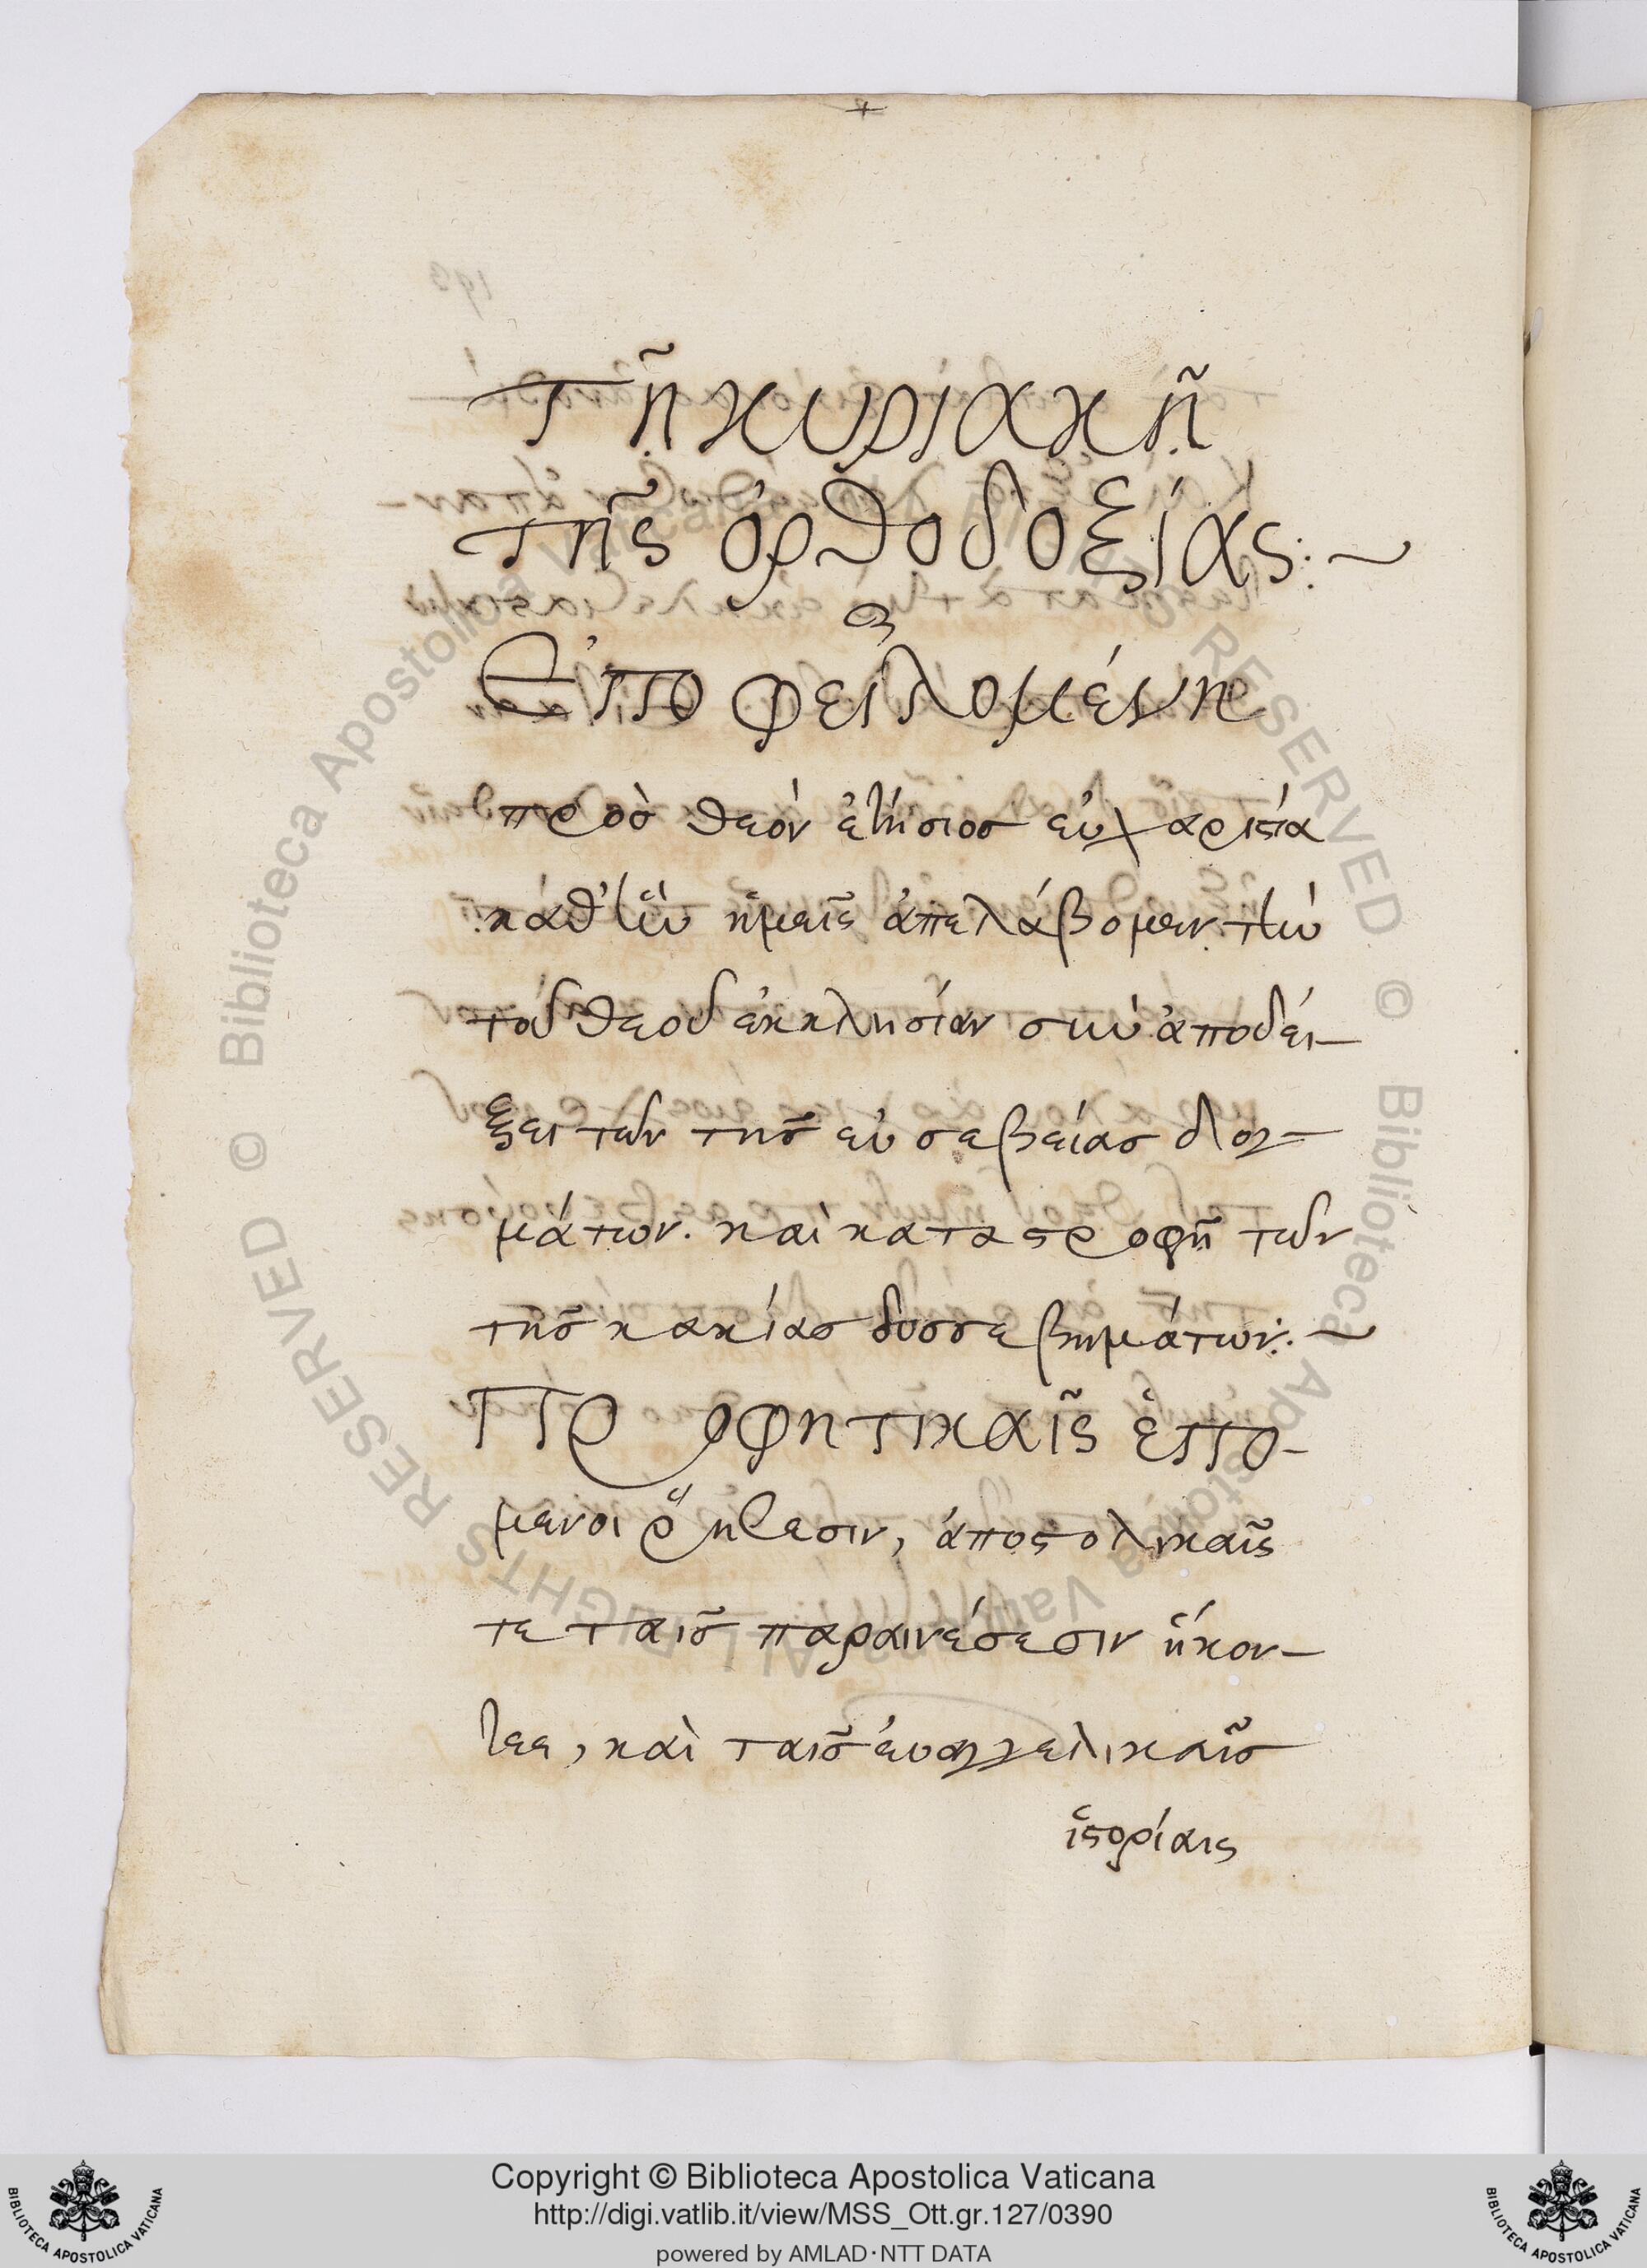 +
Τῇ κυριακῇ
τῆς ὀρθοδοξίας:~
Ἐποφειλομένη
πρὸς θεὸν ἐτήσιος εὐχαριστία
καθ' ἣν ἡμεῖς ἀπελάβομεν τὴν
τοῦ θεοῦ ἐκκλησίαν σὺν ἀποδεί-
ξει τῶν τῆς εὐσεβείας δογ-
μάτων. καὶ καταστροφῇ τῶν
τῆς κακίας δυσσεβημάτων:~
Προφητικαῖς ἑπό-
μενοι ῥήσεσιν, ἀποστολικαῖς
τε ταῖς παραινέσεσιν ἥκον-
τες, καὶ ταῖς εὐαγγελικαῖς
ἱστορίαις
© Biblioteca Apostolica Vaticana ALL RIGHTS RESERVED © Biblioteca Apostolica Vaticana ALL RIGHTS RESERVED
BIBLIOTECA APOSTOLICA VATICANA
Copyright © Biblioteca Apostolica Vaticana
http://digi.vatlib.it/view/MSS_Ott.gr.127/0390
powered by AMLAD·NTT DATA
BIBLIOTECA APOSTOLICA VATICANA